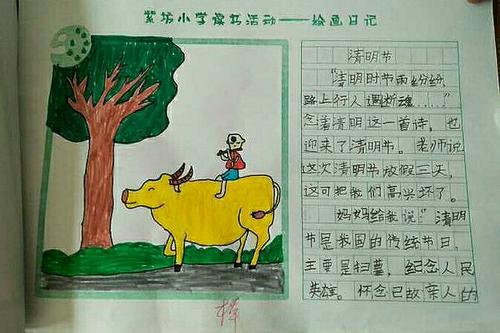 紫坊小学读书活动——绘画日记
清明节
"清明时节雨纷纷,
路上行人遇断魂....."
念着清明这一首诗,也
迎来了清明节。老师说
这次清明节放假三天,
这可把我们高兴坏了。
妈妈给我说"清明
节是我国的传统节日,
主要是扫墓,纪念人民
英雄。怀念已故亲人的